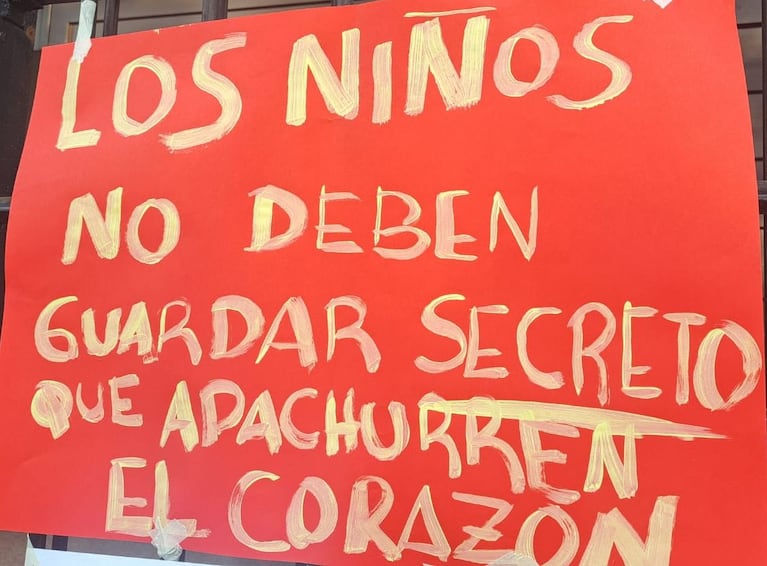 LOS NIÑOS
NO DEBEN
GUARDAR SECRETO
QUE APACHURREN
EL CORAZON